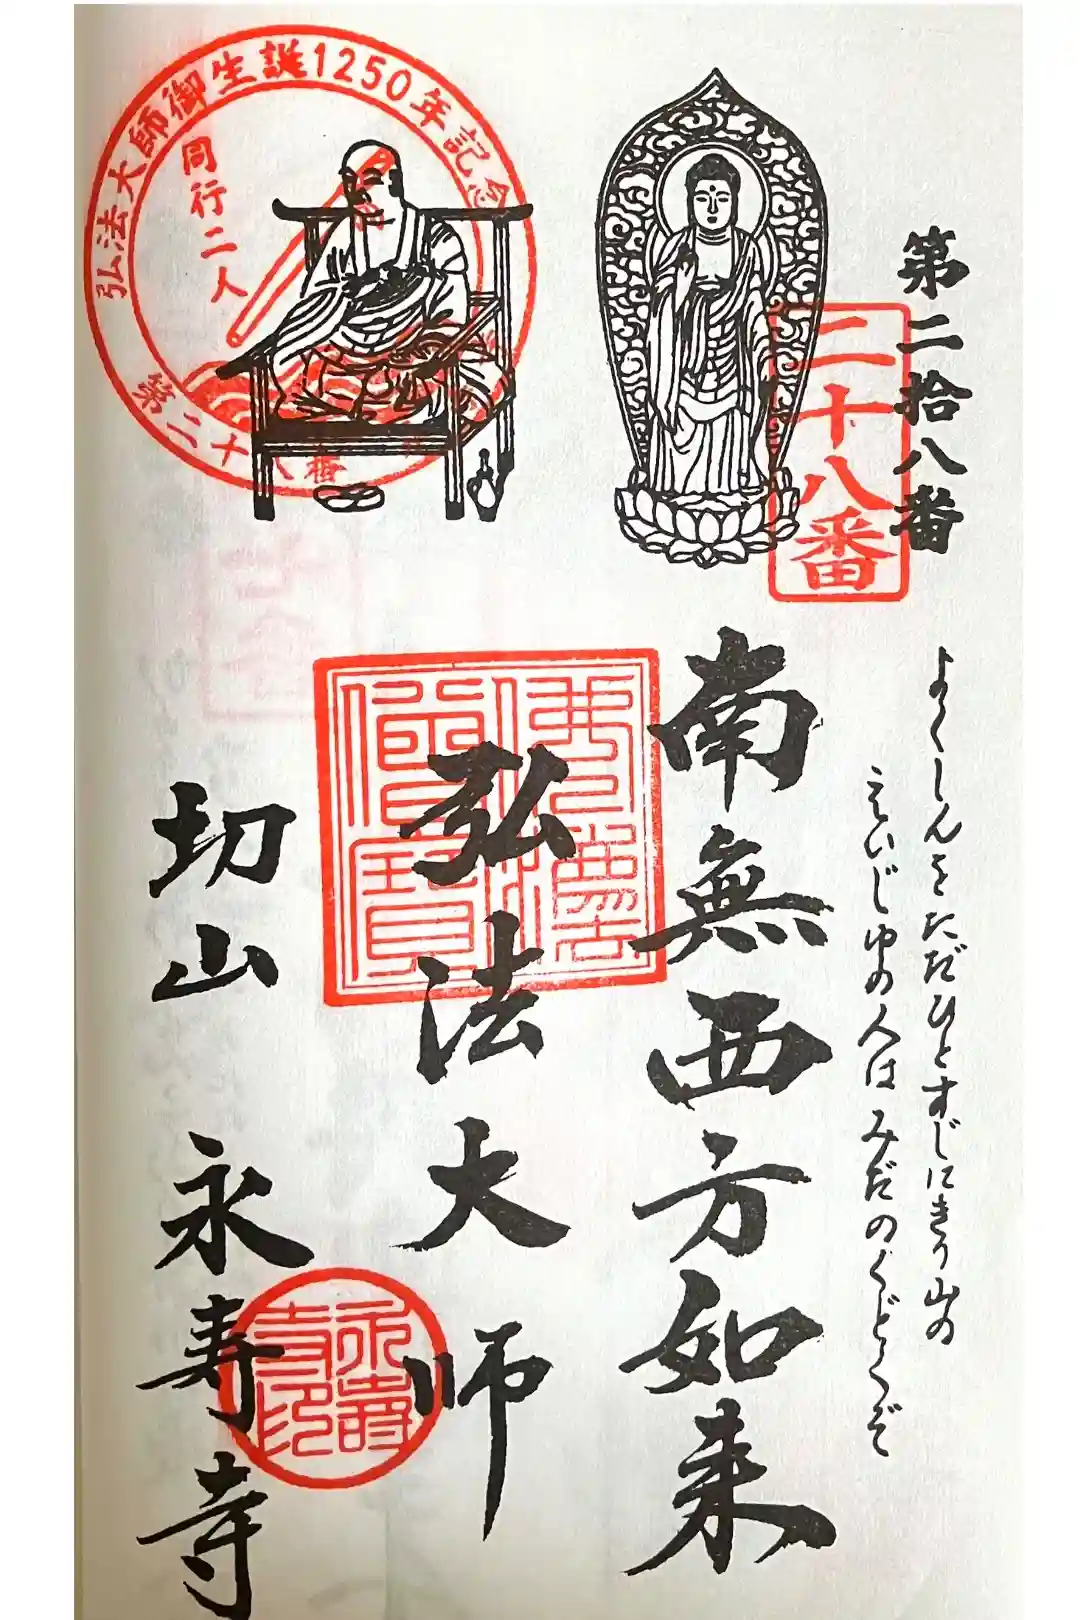 第二拾八番
二十八番
よくしんをただひとすじにきり山の
えいじゆの人はみだのくどくぞ
南無西方如来
弘法大師
切山 永寿寺
弘法大師御生誕1250年記念
同行二人
第二十八番
佛法僧寳
永壽寺印